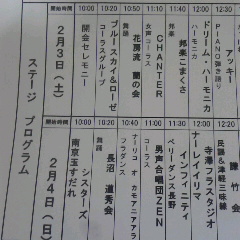 ステージ プログラム
2月3日(土)
開始時間 10:00 10:20 10:50 11:10 11:40 12:00 12:30
開会セレモニー
ブルースカイ&ローゼ
コーラスグループ
花房流 蘭の会
舞踊
CHANTER
女声コーラス
邦楽こまくさ
邦楽
ドリーム・ハーモニカ
ハーモニカ
アッキー
PIANO弾き語り
2月4日(日)
開始時間 10:00 10:20 10:40 11:10 11:40 12:00 12:30
南京玉すだれ
シスターズ
長沼 道秀会
舞踊
ナーリコ オ カマニアアラ
フラダンス
男声合唱団ZEN
コーラス
インフィニティ
ベリーダンス長野
ナーレイフリマ
寺澤フラスタジオ
民謡&津軽三味線
謙竹会